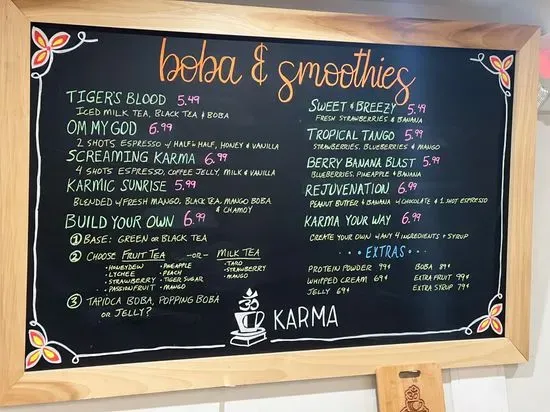 boba & smoothies
TIGER'S BLOOD 5.49
ICED MILK TEA, BLACK TEA & BOBA
OM MY GOD 6.99
2 SHOTS ESPRESSO w/ HALF n HALF, HONEY & VANILLA
SCREAMING KARMA 6.99
4 SHOTS ESPRESSO, COFFEE JELLY, MILK & VANILLA
KARMIC SUNRISE 5.99
BLENDED w/ FRESH MANGO, BLACK TEA, MANGO BOBA
& CHAMOY
BUILD YOUR OWN 6.99
① BASE: GREEN OR BLACK TEA
② CHOOSE FRUIT TEA -OR- MILK TEA
• HONEYDEW • PINEAPPLE • TARO
• LYCHEE • PEACH • STRAWBERRY
• STRAWBERRY • TIGER SUGAR • MANGO
• PASSIONFRUIT • MANGO
③ TAPIOCA BOBA, POPPING BOBA
OR JELLY?
SWEET & BREEZY 5.49
FRESH STRAWBERRIES & BANANA
TROPICAL TANGO 5.99
STRAWBERRIES, BLUEBERRIES & MANGO
BERRY BANANA BLAST 5.99
BLUEBERRIES, PINEAPPLE & BANANA
REJUVENATION 6.99
PEANUT BUTTER & BANANA w/ CHOCOLATE & 1 SHOT ESPRESSO
KARMA YOUR WAY 6.99
CREATE YOUR OWN w/ ANY 4 INGREDIENTS + SYRUP
• • • EXTRAS • • •
PROTEIN POWDER 99¢ BOBA 89¢
WHIPPED CREAM 69¢ EXTRA FRUIT 99¢
JELLY 69¢ EXTRA SYRUP 79¢
ॐ
KARMA